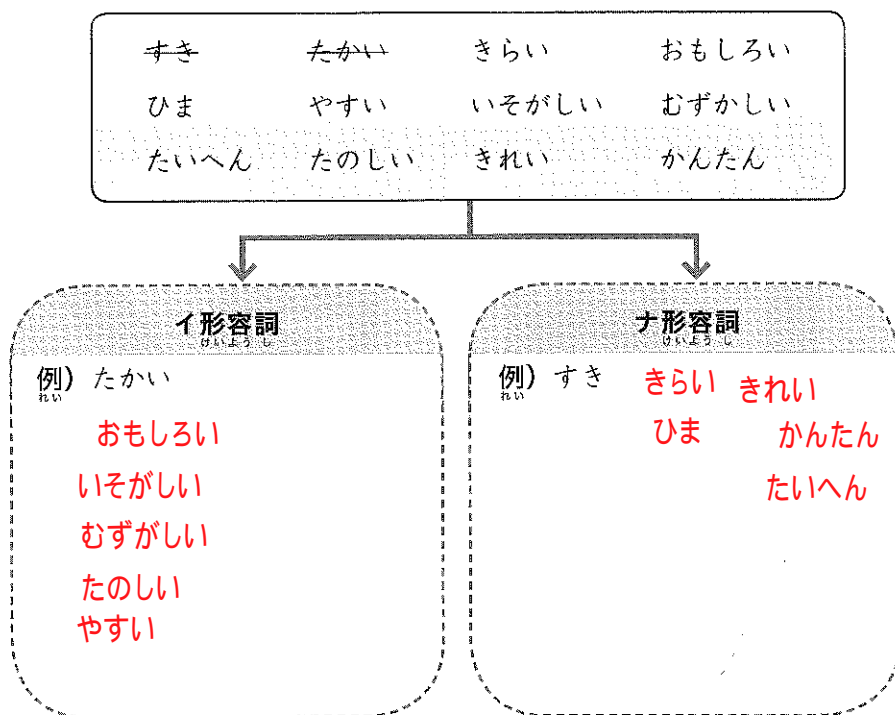 すき たかい きらい おもしろい
ひま やすい いそがしい むずかしい
たいへん たのしい きれい かんたん
イ形容詞
けいようし
例) たかい
れい
おもしろい
いそがしい
むずがしい
たのしい
やすい
ナ形容詞
けいようし
例) すき きらい きれい
れい
ひま かんたん
たいへん